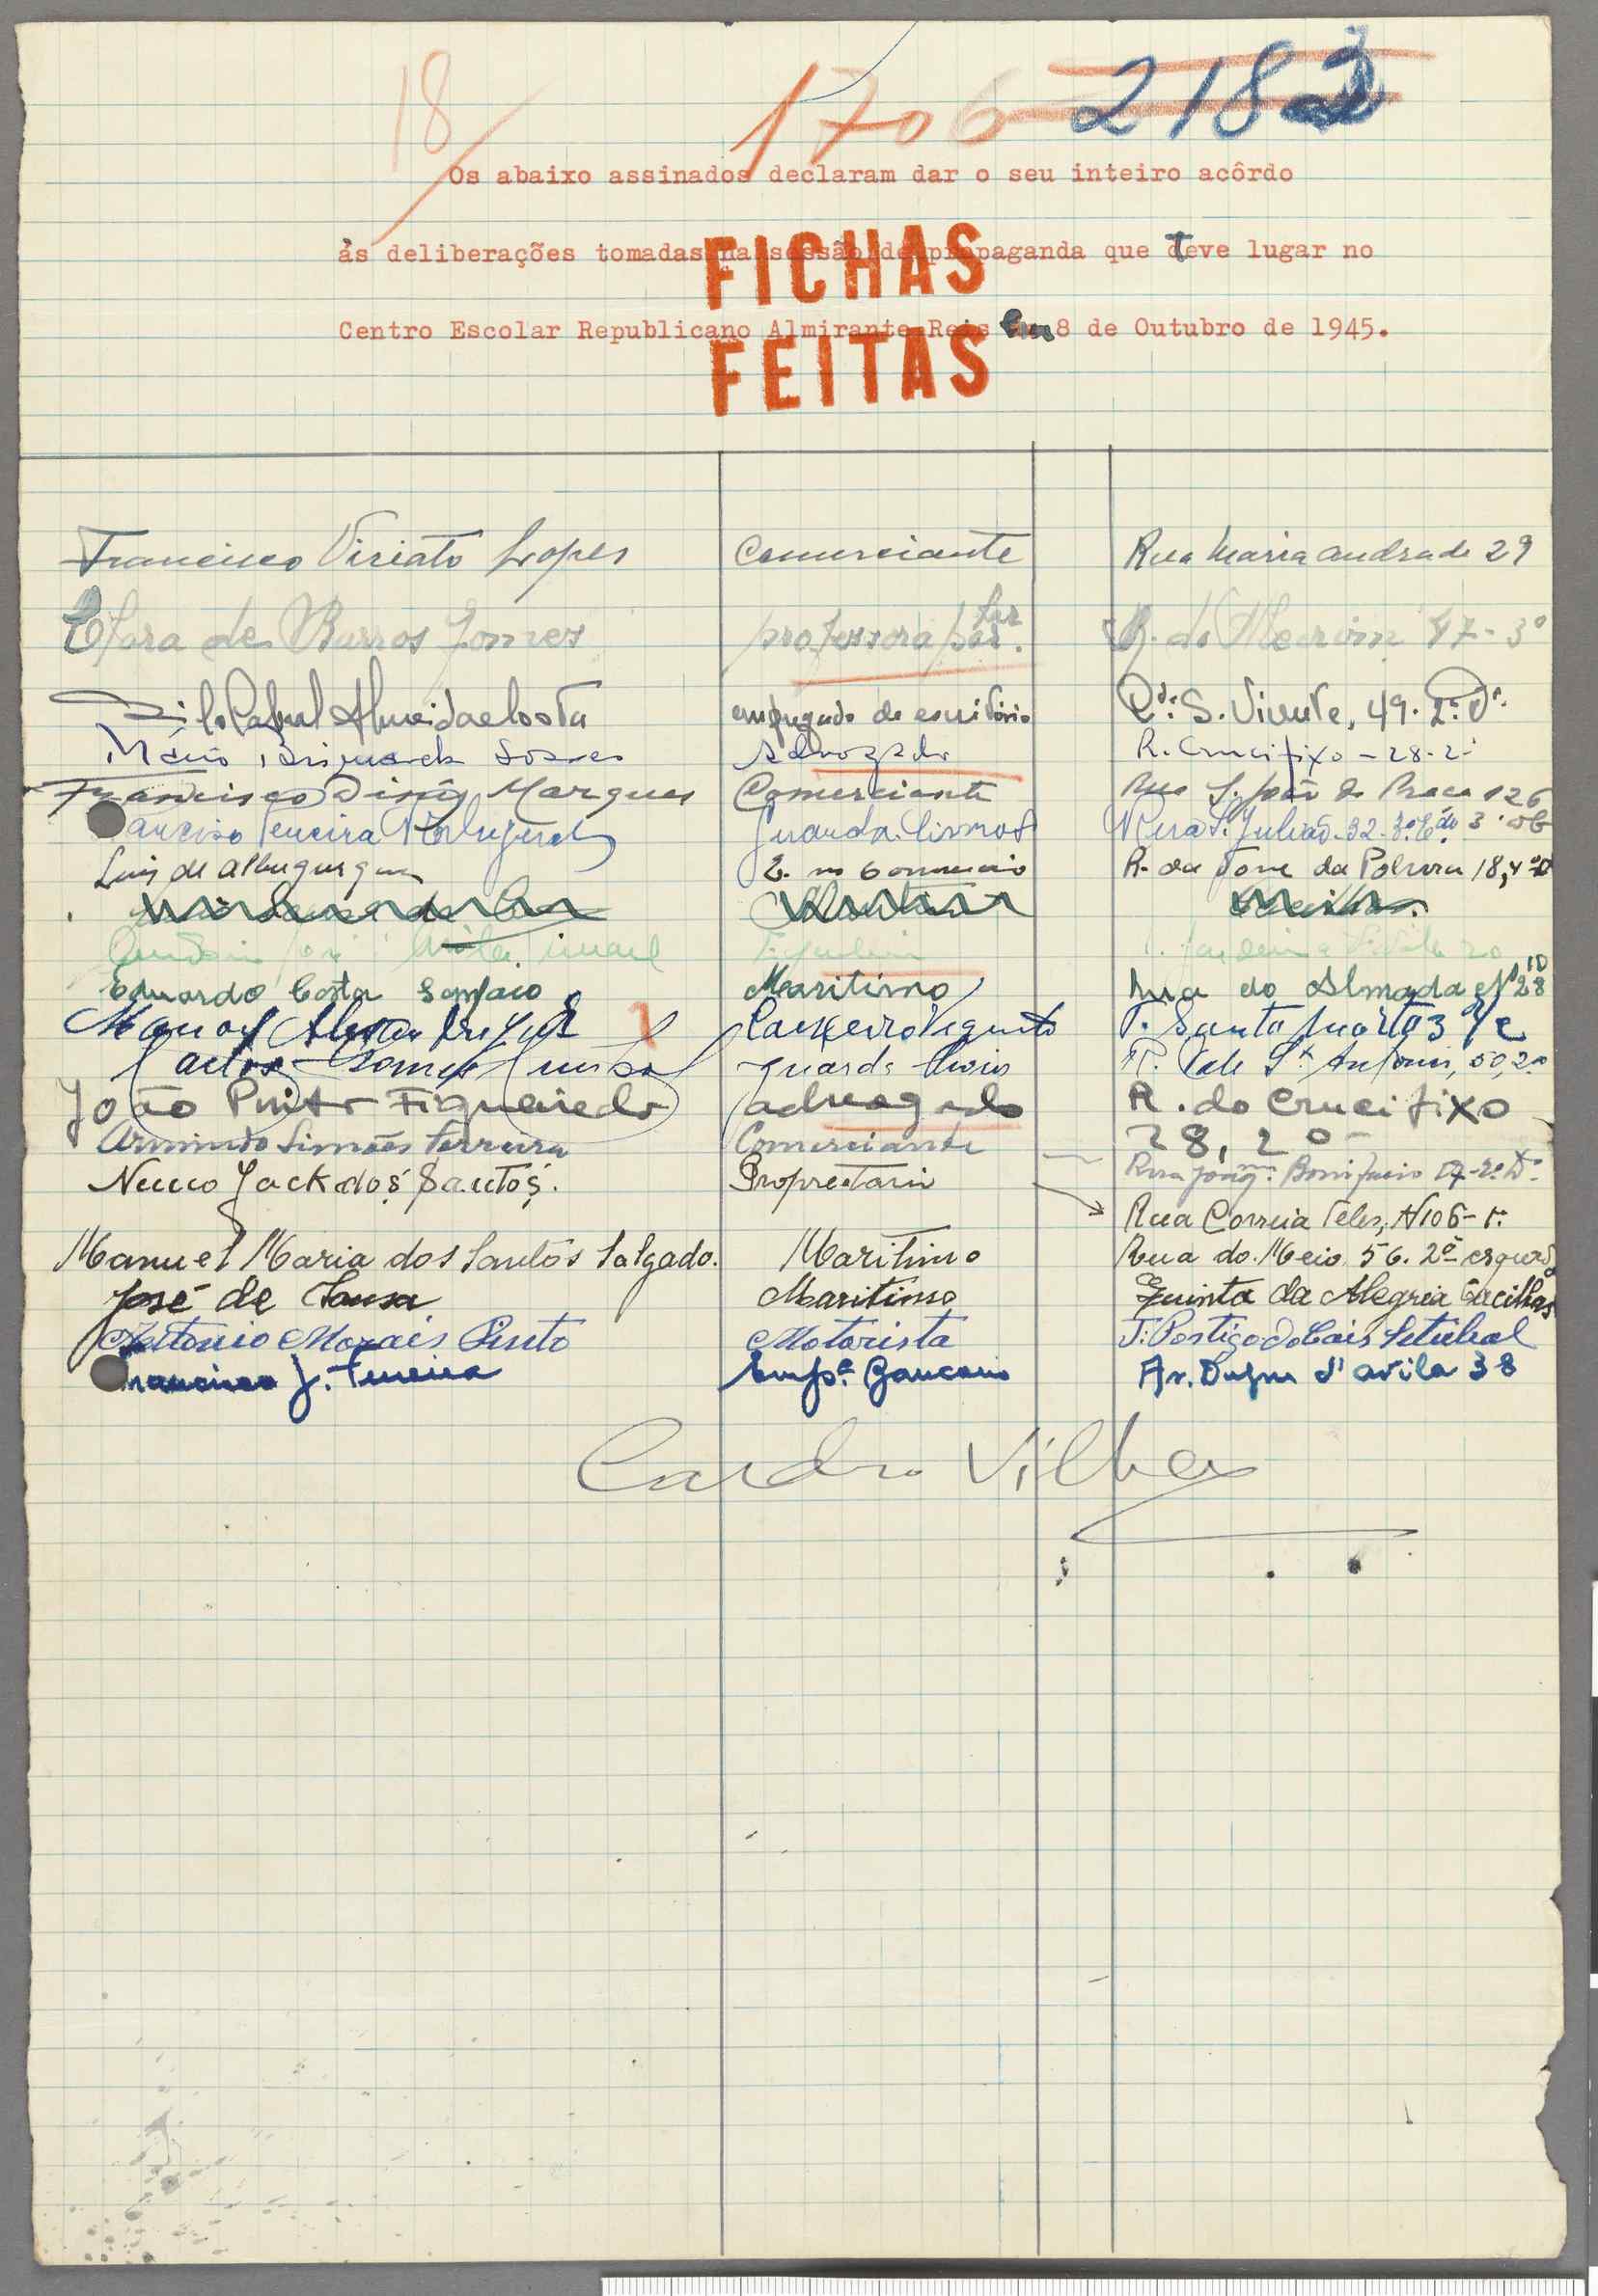 18
1706 2182
Os abaixo assinados declaram dar o seu inteiro acôrdo
às deliberações tomadas na sessão de propaganda que Teve lugar no
Centro Escolar Republicano Almirante Reis em 8 de Outubro de 1945.
FICHAS
FEITAS
Francisco Viriato Lopes Comerciante Rua Maria Andrade 29
Clara de Barros Gomes professora par. R. do Alecrim 47-3º
Cabral Almeida e Costa empregado de escritório S. Vicente, 49. 2º Dº.
Mário Soares Advogado R. Crucifixo - 28-2º
Francisco Diniz Marques Comerciante Rua S. João da Praça 126
Narciso Guarda livros Rua S. Julião 32-3º
Luis de Albuquerque E. no Comercio R. da Torre da Polvora 18,4º
Eduardo Costa Sampaio Maritimo Rua do Almada Nº 28
Manoel Caixeiro T. Santa Marta 3
Carlos Gomes guarda livros
João Pinto Figueiredo advogado R. do Crucifixo
28, 2º
Armindo Simões Ferreira Comerciante Rua Bonifacio 17-2º Dº
Nuno Jack dos Santos. Proprietario
Rua Correia Teles, Nº 106-1º
Manuel Maria dos Santos Salgado. Maritimo Rua do Meio 56. 2º esquerdo
José de Sousa Maritimo Quinta da Alegria Cacilhas
Antonio Morais Pinto Motorista T. Postigo do Cais Setubal
Francisco J. Empº. Bancario Av. Duque d'avila 38